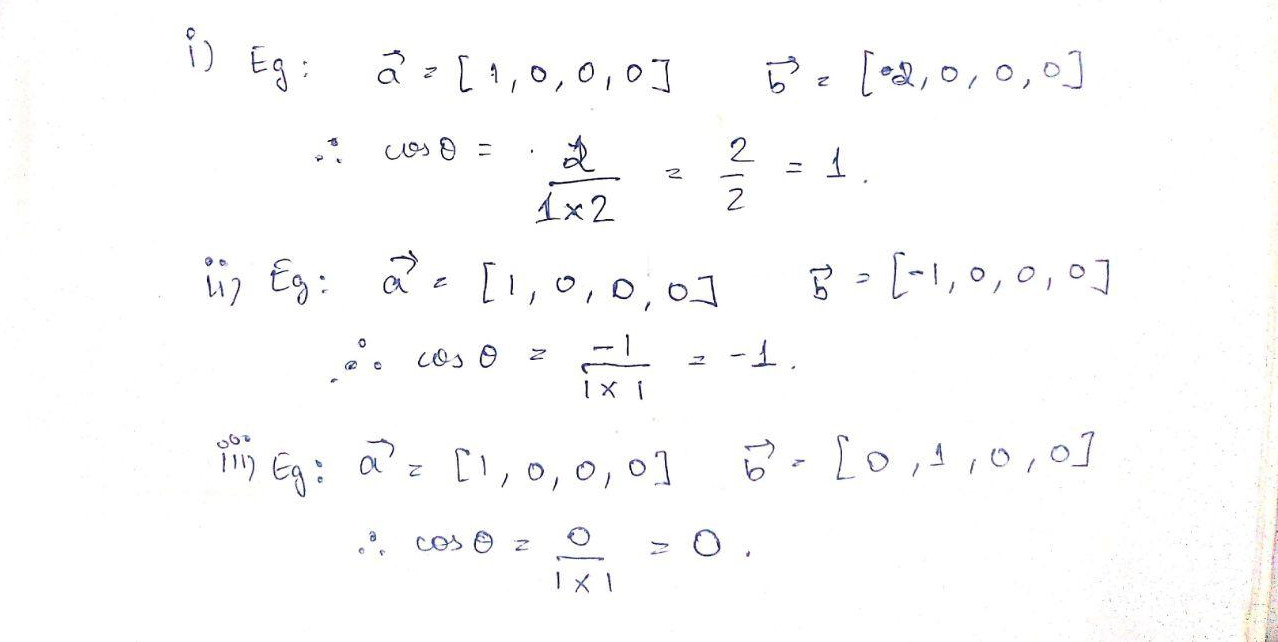 i) Eg: a⃗ = [1, 0, 0, 0] b⃗ = [2, 0, 0, 0]
∴ cos θ = 2/(1×2) = 2/2 = 1.
ii) Eg: a⃗ = [1, 0, 0, 0] b⃗ = [-1, 0, 0, 0]
∴ cos θ = -1/(1×1) = -1.
iii) Eg: a⃗ = [1, 0, 0, 0] b⃗ = [0, 1, 0, 0]
∴ cos θ = 0/(1×1) = 0.